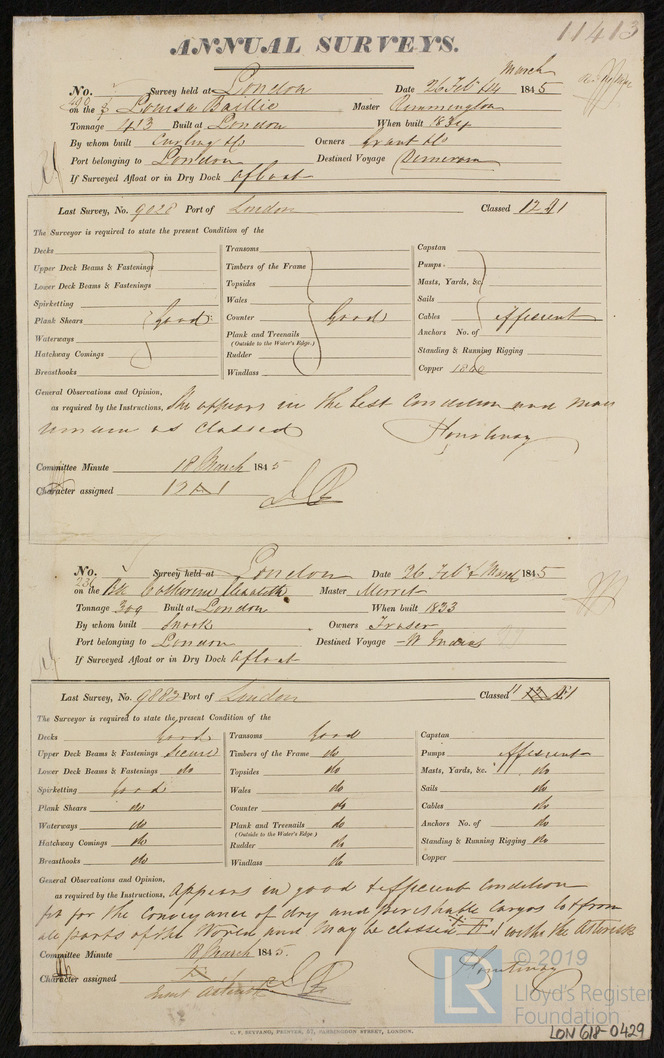 11413
ANNUAL SURVEYS.
March
No. Survey held at London Date 26 Feb 14 1845
on the Louisa Baillie Master
Tonnage 413 Built at London When built 1834
By whom built Curling &Co Owners Grant &Co
Port belonging to London Destined Voyage Demerara
If Surveyed Afloat or in Dry Dock afloat
Last Survey, No. 9028 Port of London Classed 12 A1
The Surveyor is required to state the present Condition of the
Decks Transoms Capstan
Upper Deck Beams & Fastenings Timbers of the Frame Pumps
Lower Deck Beams & Fastenings Topsides Masts, Yards, &c.
Spirketting Wales Sails
Plank Shears Good Counter Good Cables efficient
Waterways Plank and Treenails Anchors No. of
(Outside to the Water's Edge.)
Hatchway Comings Rudder Standing & Running Rigging
Breasthooks Windlass Copper
General Observations and Opinion,
as required by the Instructions, She appears in the best Condition and may
remain as Classed
Committee Minute 18 March 1845
Character assigned 12 A 1
No. Survey held at London Date 26 Feb & March 1845
236
on the Bk Catherine Elizabeth Master Merret
Tonnage 309 Built at London When built 1823
By whom built Snook Owners Fraser
Port belonging to London Destined Voyage W Indies
If Surveyed Afloat or in Dry Dock afloat
Last Survey, No. 9883 Port of London Classed
The Surveyor is required to state the present Condition of the
Decks Good Transoms Good Capstan
Upper Deck Beams & Fastenings Secure Timbers of the Frame do Pumps efficient
Lower Deck Beams & Fastenings do Topsides do Masts, Yards, &c. do
Spirketting good Wales do Sails do
Plank Shears do Counter do Cables do
Waterways do Plank and Treenails do Anchors No. of do
(Outside to the Water's Edge.)
Hatchway Comings do Rudder do Standing & Running Rigging do
Breasthooks do Windlass do Copper
General Observations and Opinion,
as required by the Instructions, appears in good & efficient Condition
fit for the Conveyance of dry and perishable Cargos to & from
all parts of the World and may be classed with the Asterisk
Committee Minute 18 March 1845.
Character assigned
© 2019
LR Lloyd's Register
Foundation
C. F. SEYFANG, PRINTER, 57, FARRINGDON STREET, LONDON.
LON 618-0429